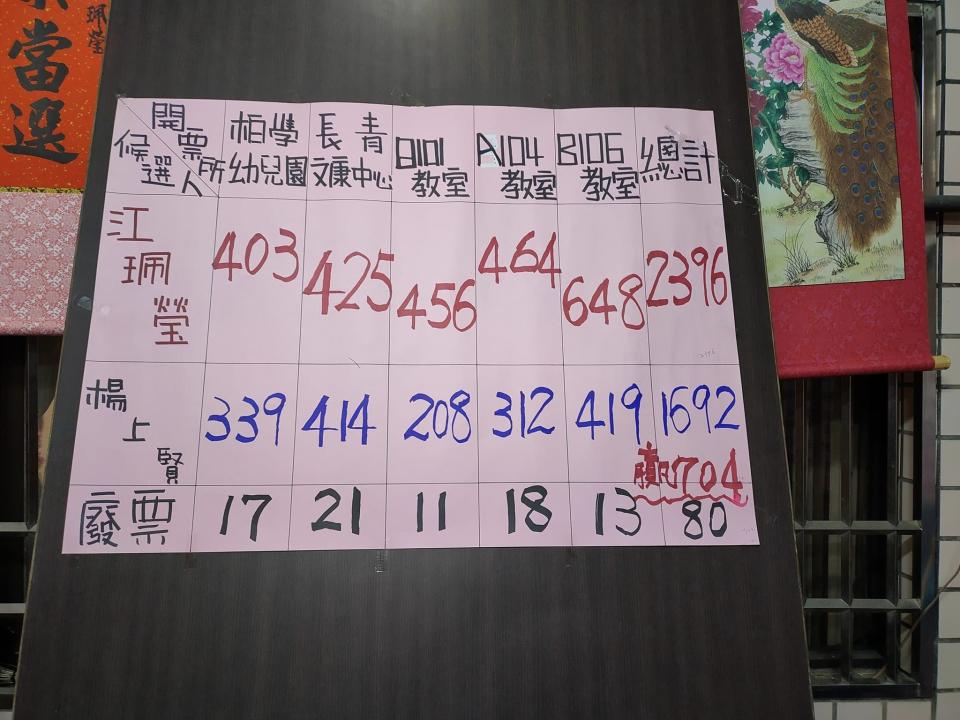 珮瑩
當選
開票所 候選人 柏學幼兒園 長青文康中心 B101教室 A104教室 B106教室 總計
江珮瑩 403 425 456 464 648 2396
楊上賢 339 414 208 312 419 1692
贏704
廢票 17 21 11 18 13 80